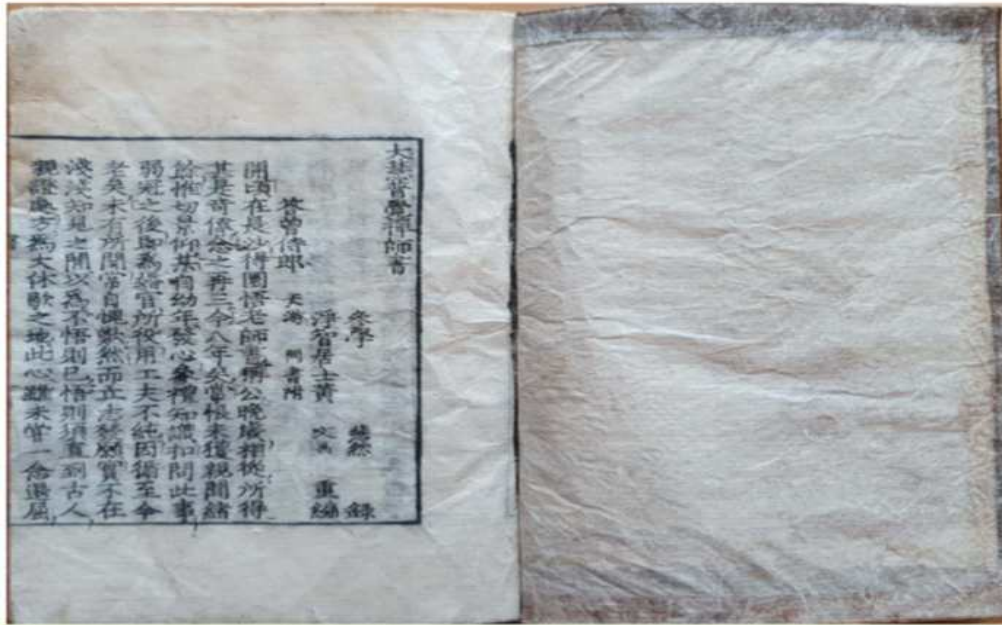 大慧普覺禪師書
參學 慧然 錄
淨智居士黃 文昌 重編
答曾侍郎 天游 問書附
開頃在長沙得圓悟老師書稱公晚歲相從所得
甚是奇偉念之再三今八年矣常恨未獲親聞緒
餘惟切景仰某自幼年發心參禮知識扣問此事
弱冠之後即為婚宦所役用工夫不純因循至今
老矣未有所聞常自愧歎然而立志發願實不在
淺淺知見之間以為不悟則已悟則須直到古人
親證處方為大休歇之地此心雖未嘗一念退屈